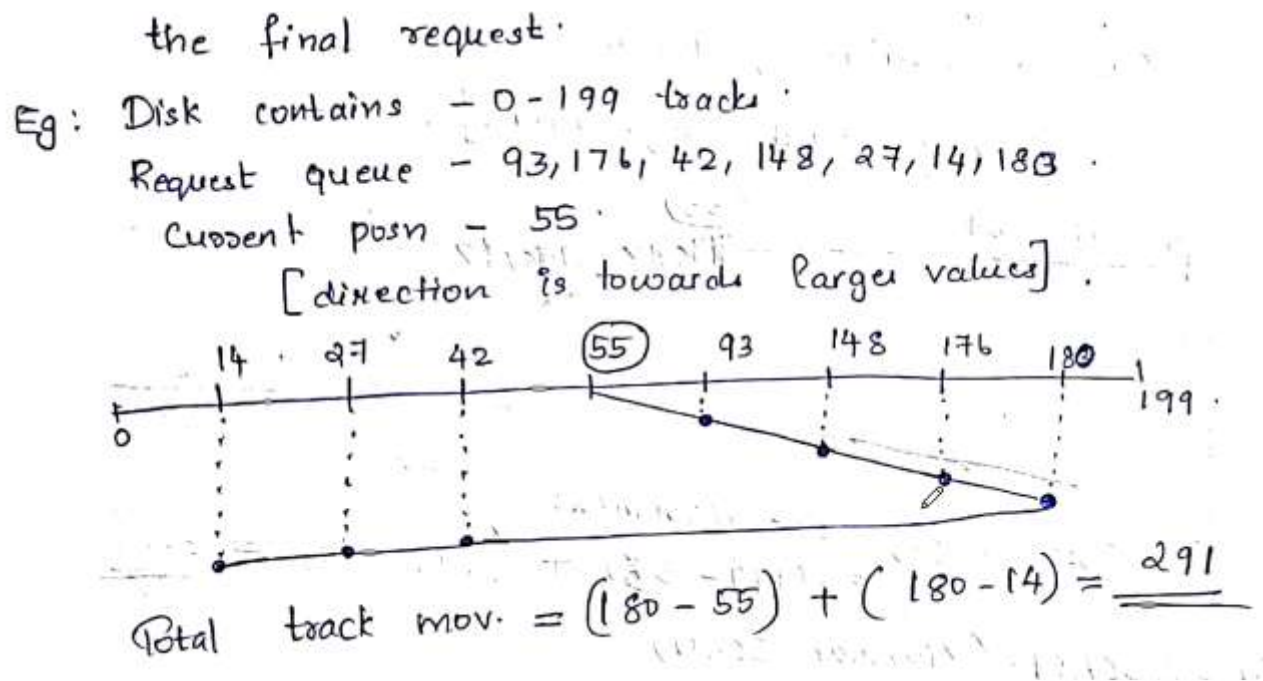 the final request.
Eg: Disk contains - 0-199 tracks.
Request queue - 93, 176, 42, 148, 27, 14, 180.
Current posn - 55.
[direction is towards larger values].
14 27 42 55 93 148 176 180
0 199.
Total track mov. = (180 - 55) + (180 - 14) = 291